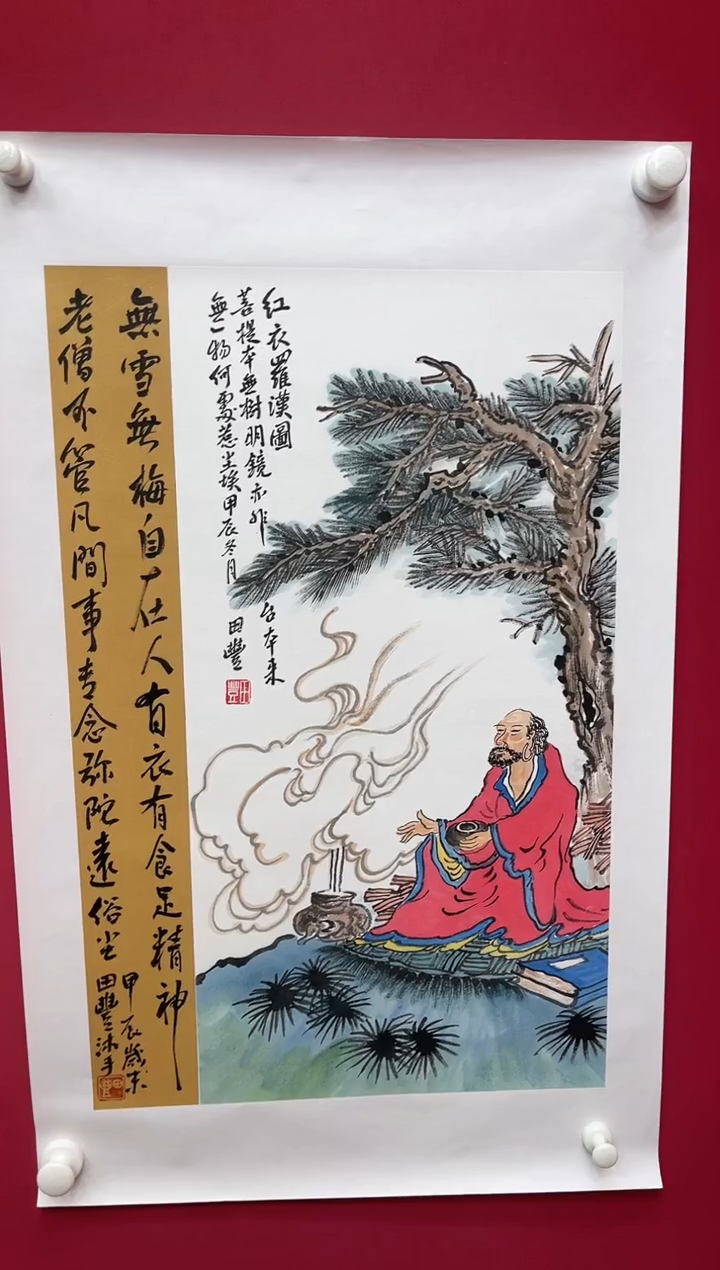 红衣羅漢圖
菩提本無樹明鏡亦非
台本来
無一物何處惹尘埃甲辰冬月
田豐
田豐
無雪無梅自在人有衣有食足精神
老僧不管凡間事专念弥陀遠俗尘
甲辰歲末
田豐沐手
田豐